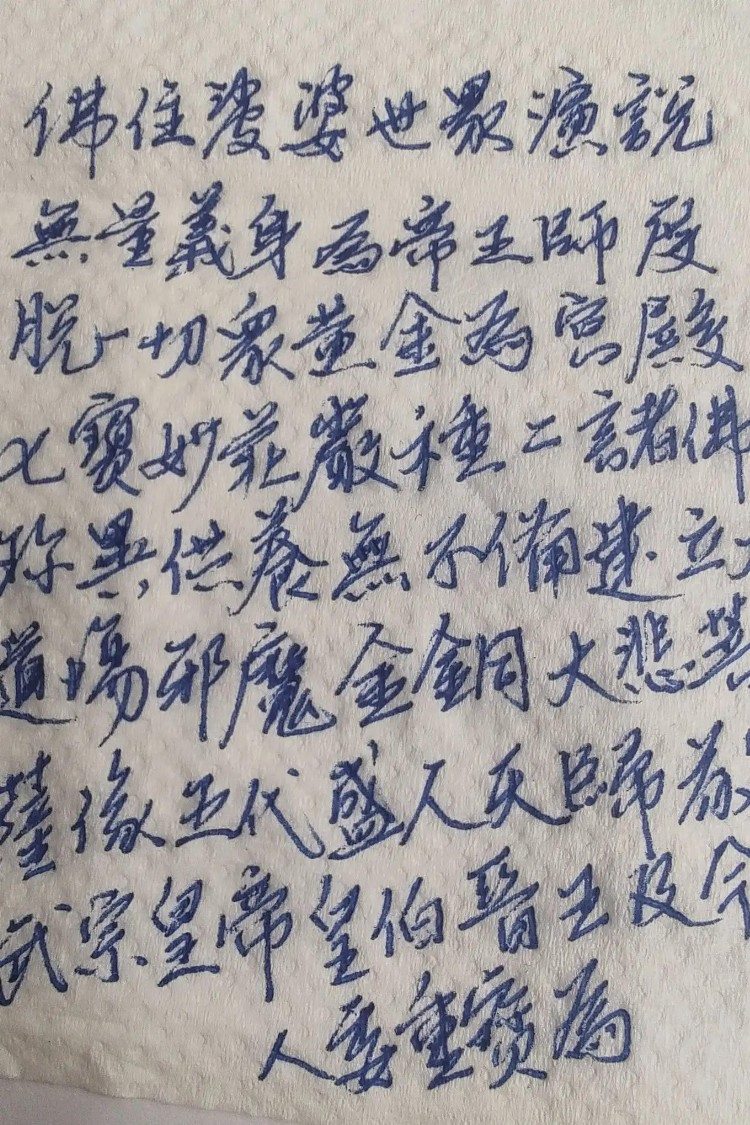 佛住娑婆世眾演說
無量義身為帝王師度
脫一切眾黃金為宮殿
七寶妙莊嚴種二言諸佛
珍異供養無不備建立大
道場邪魔金銅大悲菩
薩像五代盛人天師教
武宗皇帝皇伯晉王及令
人委重寶為